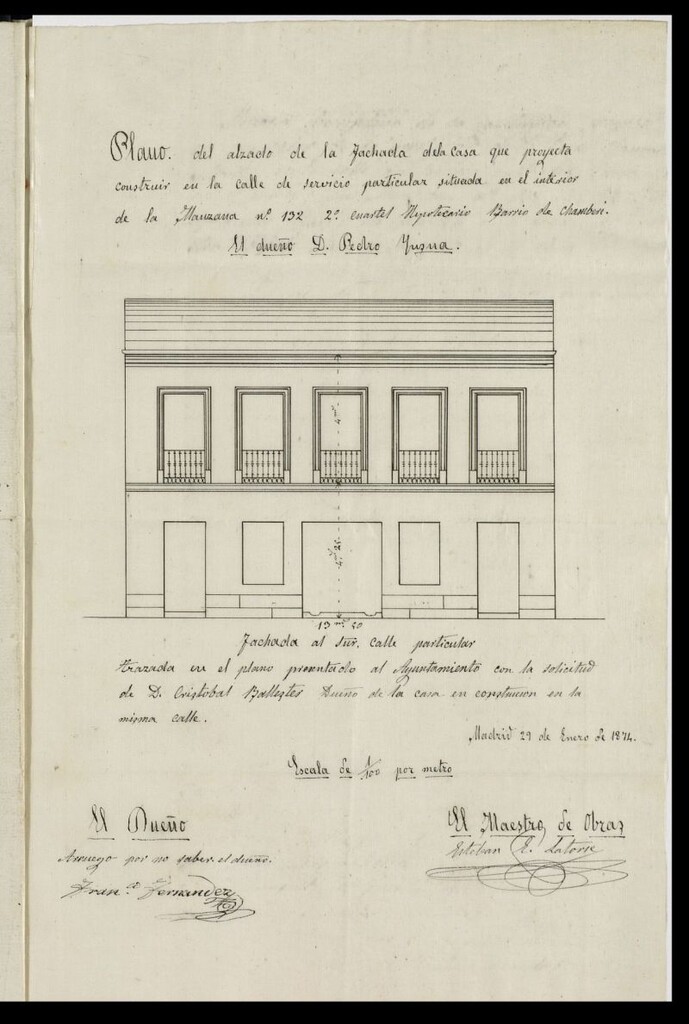 Plano. del alzado de la Fachada dela Casa que proyecta
construir en la calle de servicio particular situada en el interior
de la Manzana nº 132 2º cuartel Hipotecario Barrio de Chamberi.
El dueño D. Pedro
4ms
4ms 25
13 ms 50
Fachada al Sur. Calle particular
trazada en el plano presentado al Ayuntamiento con la solicitud
de D. Cristobal Ballester Dueño de la casa en construcion en la
misma calle.
Madrid 29 de Enero de 1874.
Escala de 1/100 por metro
El Dueño
El Maestro de Obras
Arruego por no saber el dueño.
Esteban E. Latorre
Franco. Fernandez